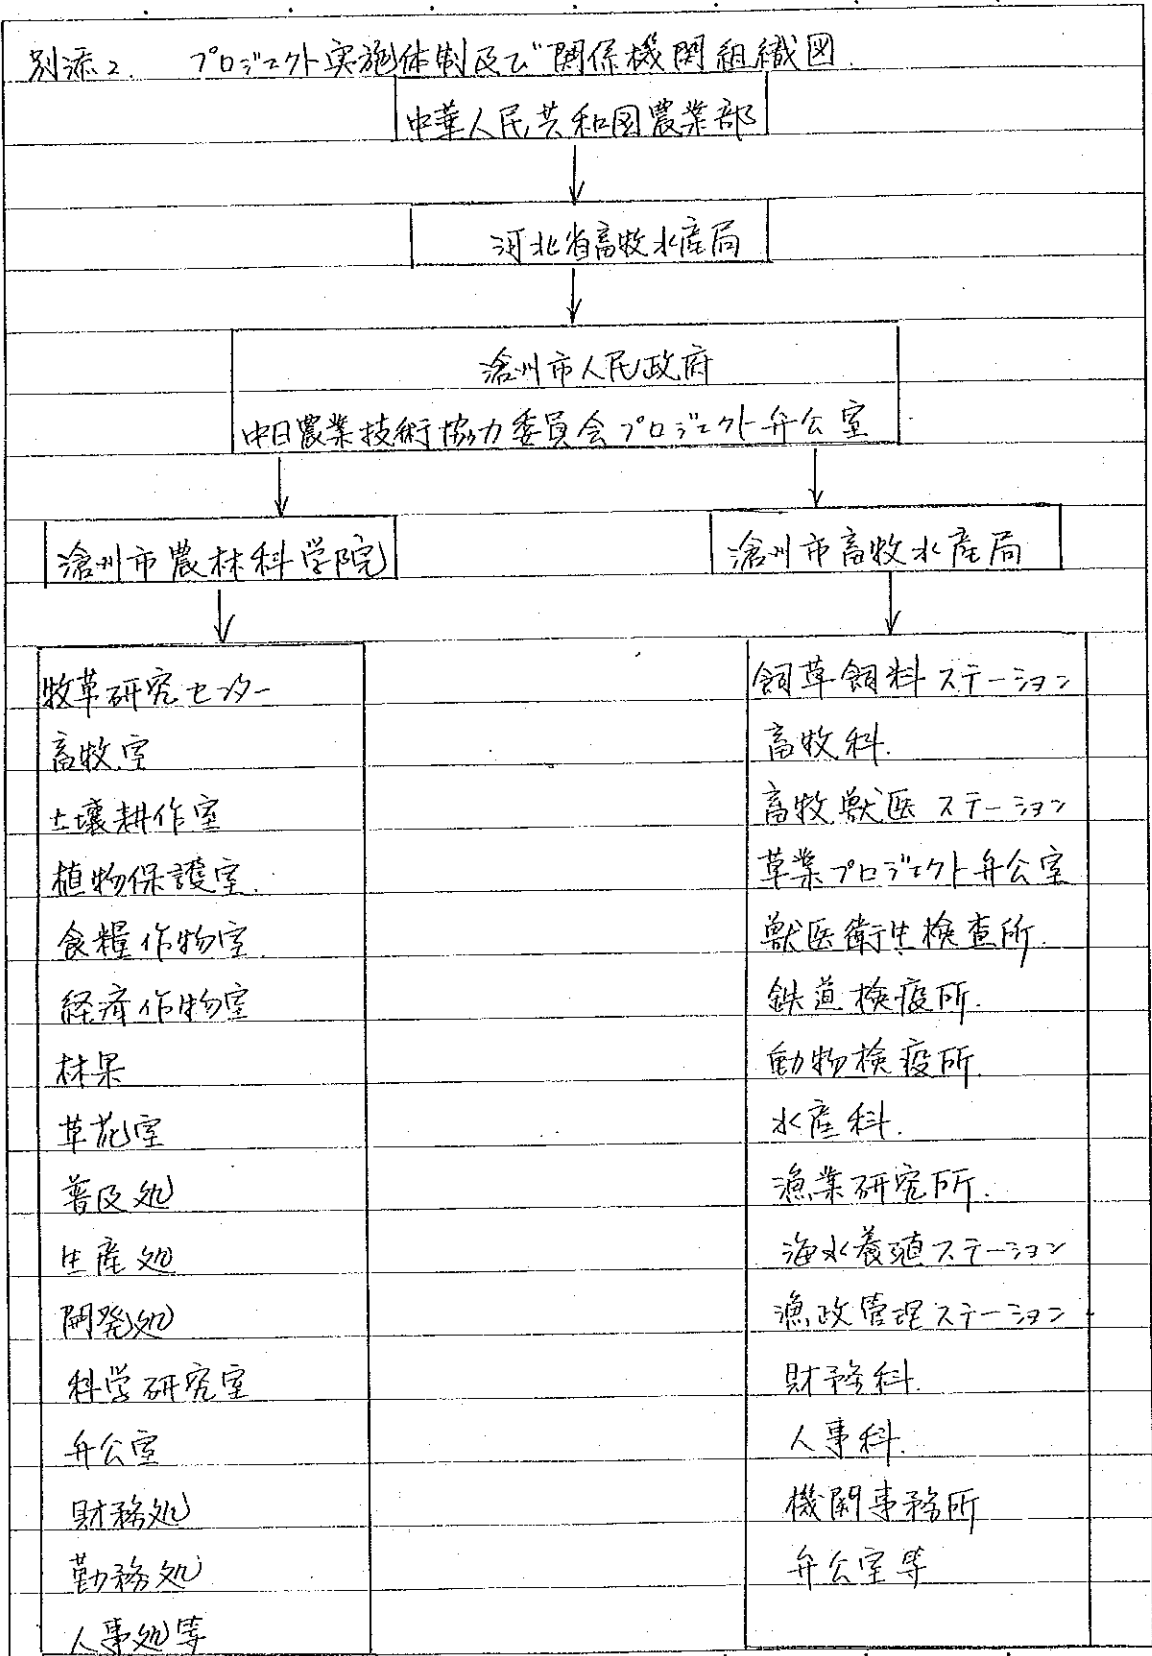 別添2. プロジェクト実施体制及び関係機関組織図.
中華人民共和国農業部
河北省畜牧水産局
滄州市人民政府
中日農業技術協力委員会プロジェクト弁公室
滄州市農林科学院
滄州市畜牧水産局
牧草研究センター
畜牧室
土壌耕作室
植物保護室.
食糧作物室.
経済作物室
林果
草花室
普及処
生産処
開発処
科学研究室
弁公室
財務処
勤務処
人事処等
飼草飼料ステーション
畜牧科.
畜牧獣医ステーション
草業プロジェクト弁公室
獣医衛生検査所.
鉄道検疫所.
動物検疫所.
水産科.
漁業研究所.
海水養殖ステーション
漁政管理ステーション
財務科.
人事科.
機関事務所
弁公室等